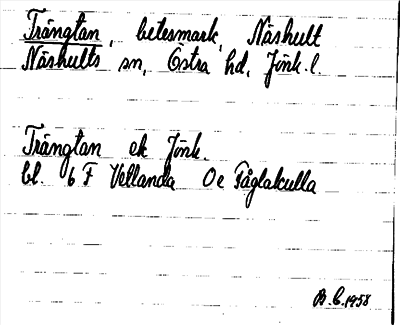 Trängtan, betesmark, Näshult
Näshults sn, Östra hd, Jönk. l.
Trängtan ek Jönk.
bl 6 F Vetlanda 0e Fåglakulla
B.C. 1958